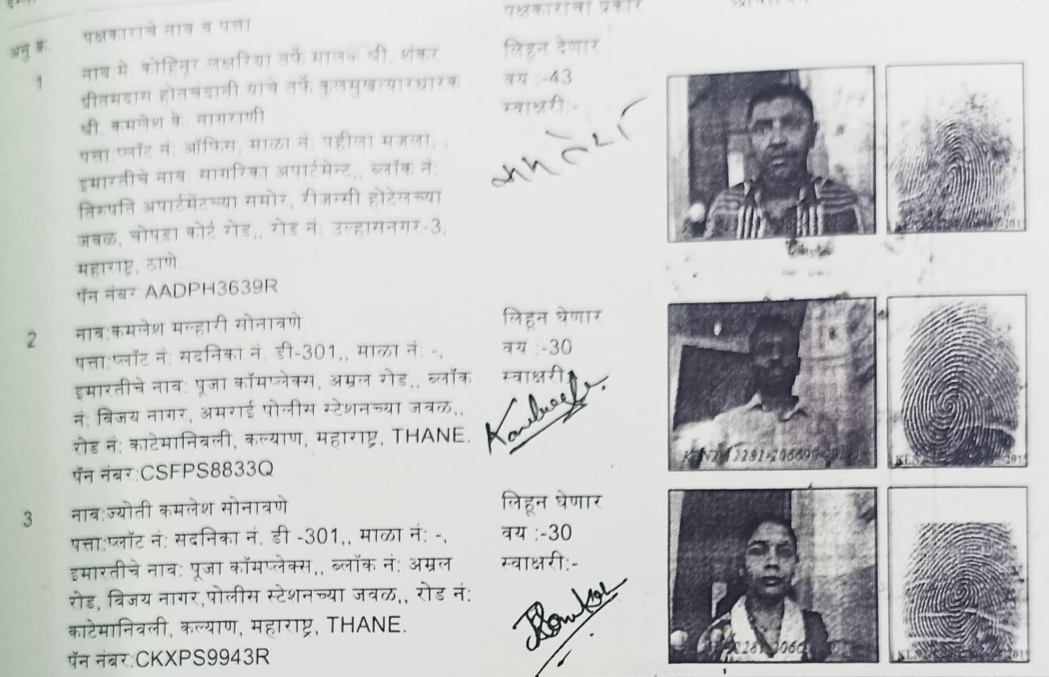 पक्षकाराचा प्रकार
अनु क्र. पक्षकाराचे नाव व पत्ता
1 नाव:मे. कोहिनूर लक्षरिया तर्फे मालक श्री. शंकर
प्रीतमदास होतचंदानी यांचे तर्फे कुलमुखत्यारधारक
श्री. कमलेश के. नागराणी
पत्ता:प्लॉट नं: ऑफिस, माळा नं: पहीला मजला, ,
इमारतीचे नाव: सागरिका अपार्टमेन्ट,, ब्लॉक नं:
तिरुपति अपार्टमेंटच्या समोर, रीजन्सी होटेलच्या
जवळ, चोपडा कोर्ट रोड,, रोड नं: उल्हासनगर-3,
महाराष्ट्र, ठाणे.
पॅन नंबर:AADPH3639R
लिहून देणार
वय :-43
स्वाक्षरी:-
2 नाव:कमलेश मल्हारी सोनावणे
पत्ता:प्लॉट नं: सदनिका नं. डी-301,, माळा नं: -,
इमारतीचे नाव: पूजा कॉमप्लेक्स, अम्रल रोड,, ब्लॉक
नं: विजय नागर, अमराई पोलीस स्टेशनच्या जवळ,,
रोड नं: काटेमानिवली, कल्याण, महाराष्ट्र, THANE.
पॅन नंबर:CSFPS8833Q
लिहून घेणार
वय :-30
स्वाक्षरी:-
3 नाव:ज्योती कमलेश सोनावणे
पत्ता:प्लॉट नं: सदनिका नं. डी -301,, माळा नं: -,
इमारतीचे नाव: पूजा कॉमप्लेक्स,, ब्लॉक नं: अम्रल
रोड, विजय नागर,पोलीस स्टेशनच्या जवळ,, रोड नं:
काटेमानिवली, कल्याण, महाराष्ट्र, THANE.
पॅन नंबर:CKXPS9943R
लिहून घेणार
वय :-30
स्वाक्षरी:-